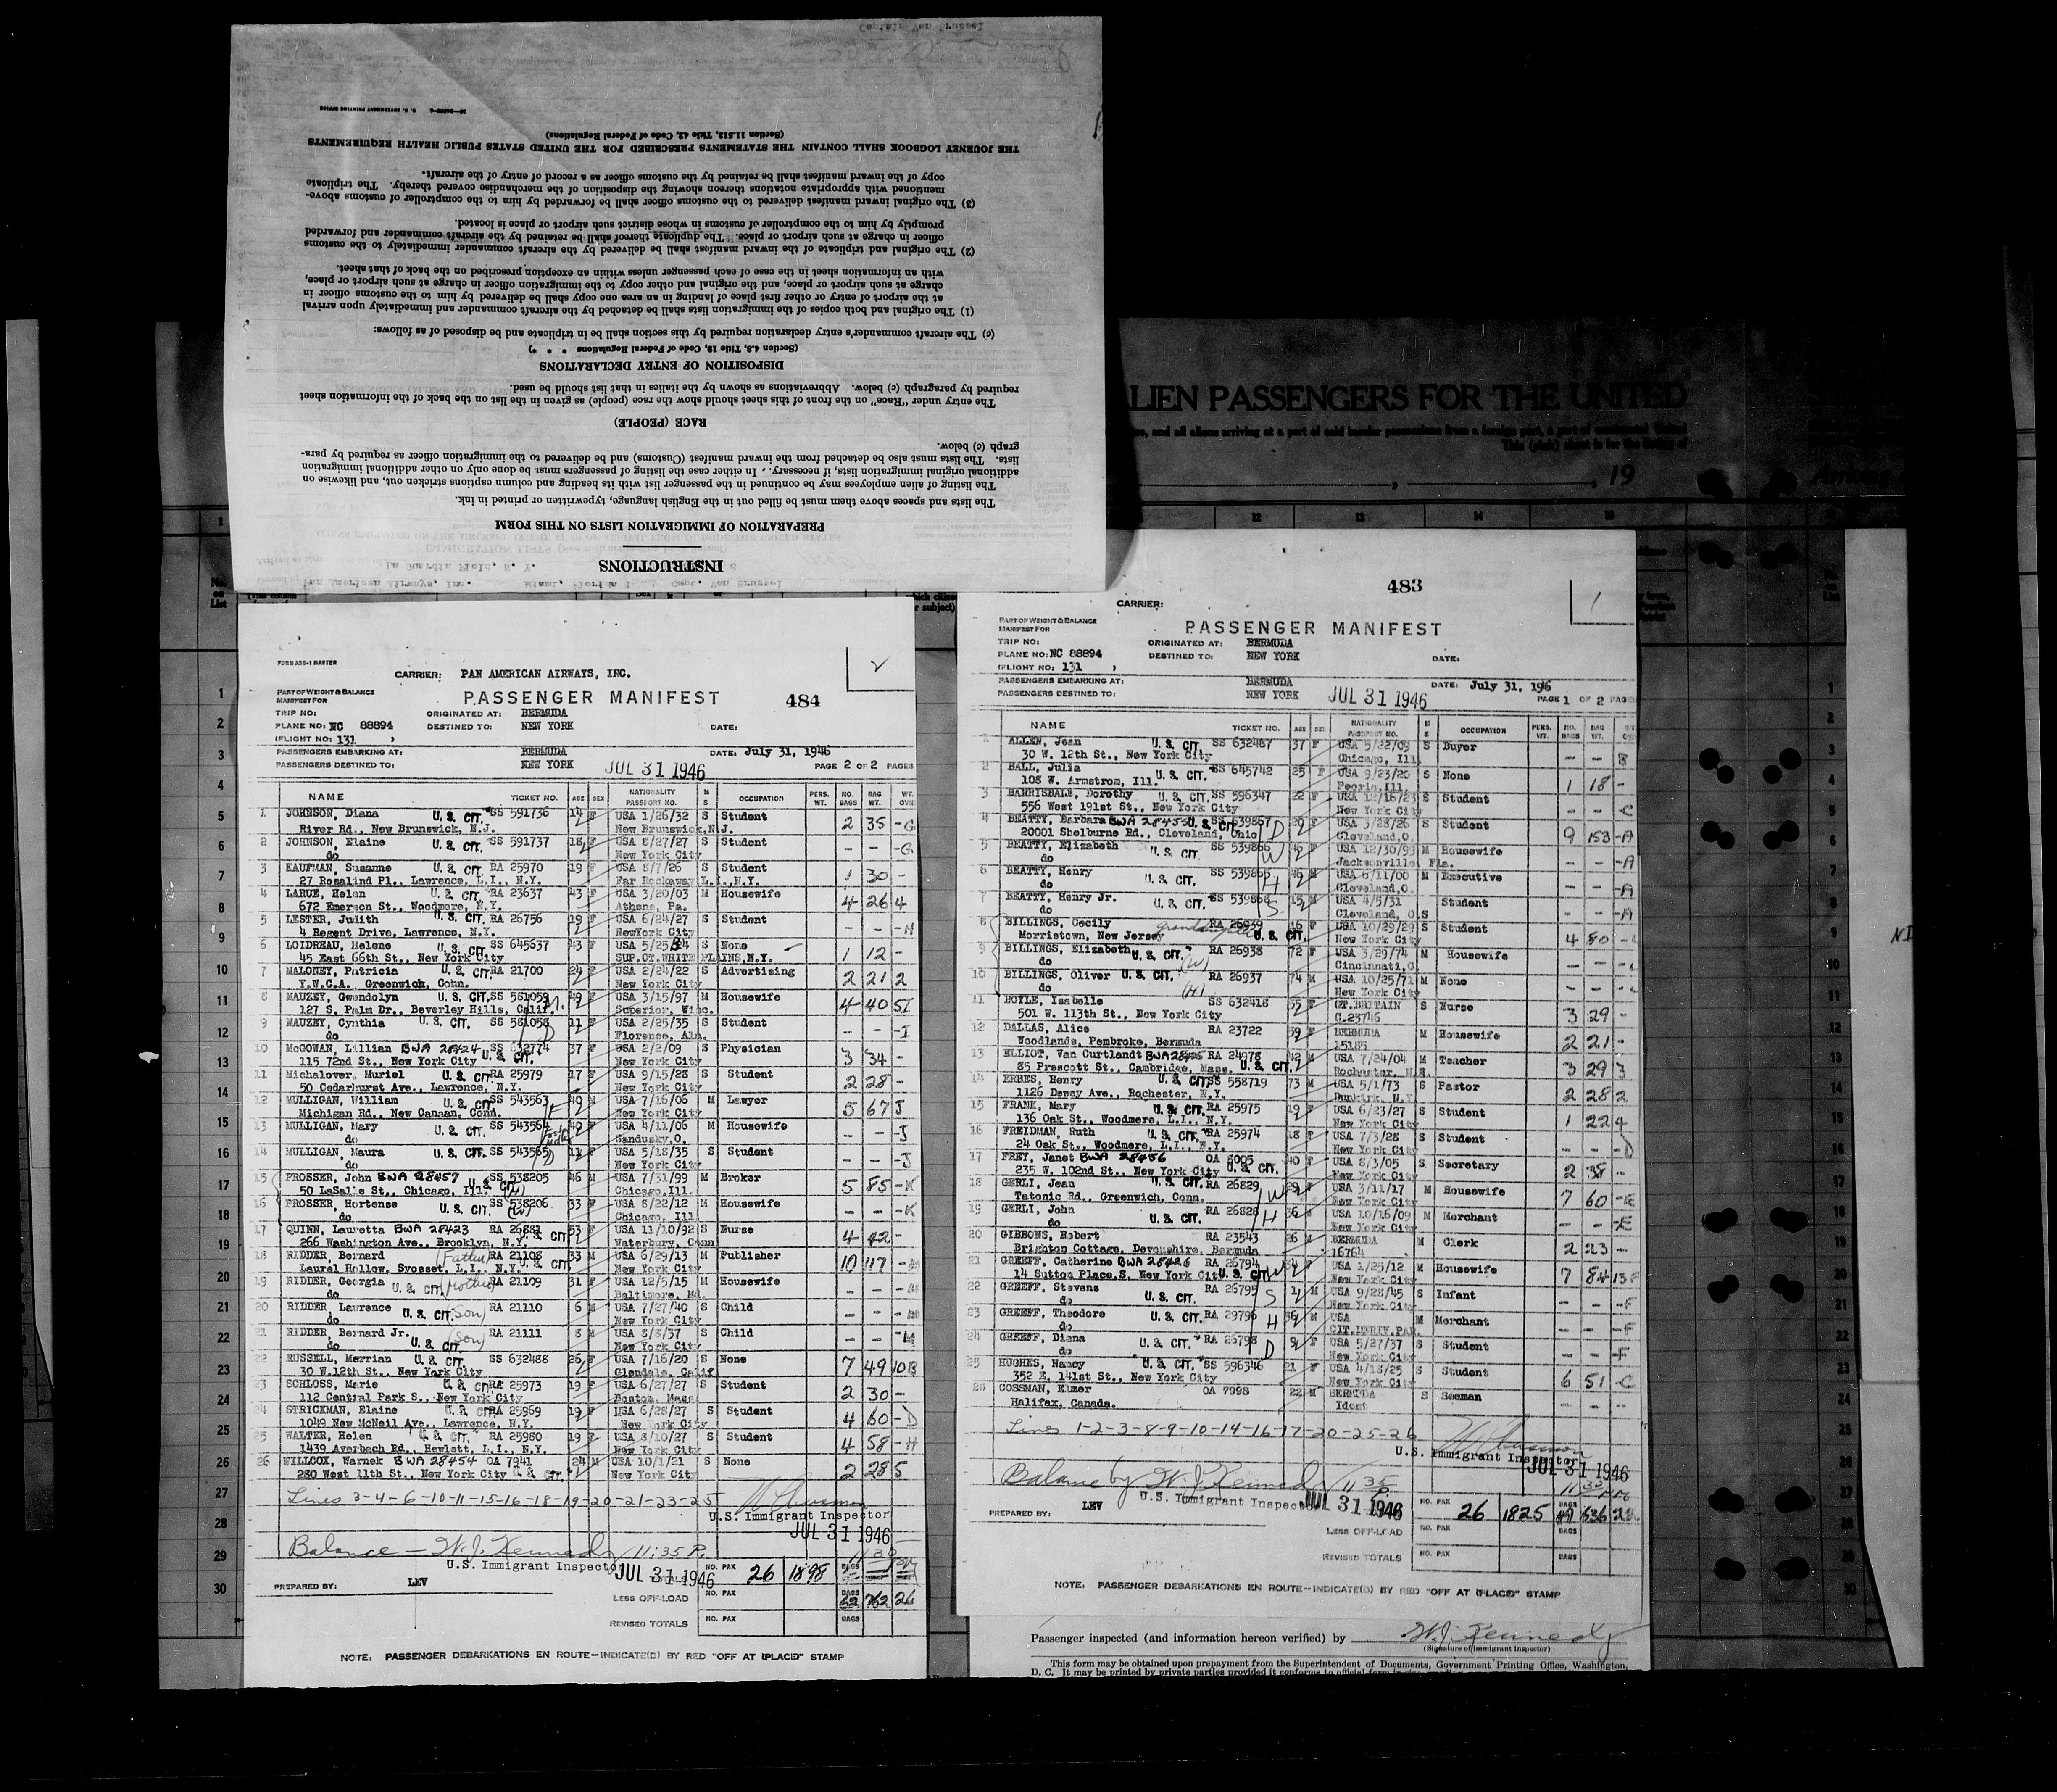 Captain Van Brussel
THE JOURNEY LOGBOOK SHALL CONTAIN THE STATEMENTS PRESCRIBED FOR THE UNITED STATES PUBLIC HEALTH REQUIREMENTS
(Section 11.513, Title 42, Code of Federal Regulations)
INSTRUCTIONS
PREPARATION OF IMMIGRATION LISTS ON THIS FORM
The lists and spaces above them must be filled out in the English language, typewritten or printed in ink.
The listing of alien employees may be continued in the passenger list with its heading and column captions stricken out, and likewise on
additional original immigration lists, if necessary. In either case the listing of passengers must be done only on other additional immigration
lists. The lists must also be detached from the inward manifest (Customs) and be delivered to the immigration officer as required by para-
graph (c) below.
RACE (PEOPLE)
The entry under "Race" on the front of this sheet should show the race (people) as given in the list on the back of the information sheet
required by paragraph (c) below. Abbreviations as shown by the italics in that list should be used.
DISPOSITION OF ENTRY DECLARATIONS
(Section 4.8, Title 19, Code of Federal Regulations * * *)
(c) The aircraft commander's entry declaration required by this section shall be in triplicate and be disposed of as follows:
(1) The original and both copies of the immigration lists shall be detached by the aircraft commander and immediately upon arrival
at the airport of entry or other first place of landing in an area one copy shall be delivered by him to the customs officer in
charge at such airport or place, and the original and other copy to the immigration officer in charge at such airport or place,
with an information sheet in the case of each passenger unless within an exception prescribed on the back of that sheet.
(2) The original and triplicate of the inward manifest shall be delivered by the aircraft commander immediately to the customs
officer in charge at such airport or place. The duplicate thereof shall be retained by the aircraft commander and forwarded
promptly by him to the comptroller of customs in whose district such airport or place is located.
(3) The original inward manifest delivered to the customs officer shall be forwarded by him to the comptroller of customs above-
mentioned with appropriate notations thereon showing the disposition of the merchandise covered thereby. The triplicate
copy of the inward manifest shall be retained by the customs officer as a record of entry of the aircraft.
LIEN PASSENGERS FOR THE UNITED
, 19
12 13 14 15
CARRIER: PAN AMERICAN AIRWAYS, INC.
PART OF WEIGHT & BALANCE
MANIFEST FOR
PASSENGER MANIFEST 484
TRIP NO: ORIGINATED AT: BERMUDA
PLANE NO: NC 88894 DESTINED TO: NEW YORK DATE:
(FLIGHT NO: 131 )
PASSENGERS EMBARKING AT: BERMUDA DATE: July 31, 1946
PASSENGERS DESTINED TO: NEW YORK JUL 31 1946 PAGE 2 OF 2 PAGES
NAME TICKET NO. AGE SEX NATIONALITY PASSPORT NO. M S OCCUPATION PERS. WT. NO. BAGS BAG WT. WT. OVR
1 JOHNSON, Diana U. S. CIT. SS 591736 14 F USA 1/26/32 S Student 2 35 -G
River Rd., New Brunswick, N.J. New Brunswick, N.J.
2 JOHNSON, Elaine U. S. CIT. SS 591737 18 F USA 8/27/27 S Student - - -G
do New York City
3 KAUFMAN, Susanne U. S. CIT. RA 25970 19 F USA 8/7/26 S Student 1 30 -
27 Rosalind Pl., Lawrence, L.I., N.Y. Far Rockaway L.I., N.Y.
4 LARUE, Helen U. S. CIT. RA 23637 43 F USA 3/20/03 M Housewife 4 26 4
672 Emerson St., Woodmere, N.Y. Athens, Pa.
5 LESTER, Judith U. S. CIT. RA 26756 19 F USA 6/24/27 S Student - - -H
4 Regent Drive, Lawrence, N.Y. NewYork City
6 LOIDREAU, Helene U. S. CIT. SS 645637 43 F USA 5/25 S None 1 12 -
45 East 66th St., New York City SUP.CT.WHITE PLAINS,N.Y.
7 MALONEY, Patricia U. S. CIT. RA 21700 24 F USA 2/24/22 S Advertising 2 21 2
Y.W.C.A. Greenwich, Conn. New York City
8 MAUZEY, Gwendolyn U. S. CIT. SS 581059 49 F USA 3/15/97 M Housewife 4 40 5I
127 S. Palm Dr., Beverley Hills, Calif. Superior, Wisc.
9 MAUZEY, Cynthia U. S. CIT. SS 581058 11 F USA 2/25/35 S Student - - -I
do Florence, Ala.
10 McGOWAN, Lillian BWA 28424 SS 632774 37 F USA 2/2/09 S Physician 3 34 -
115 72nd St., New York City U. S. CIT. New York City
11 Michalover, Muriel U. S. CIT. RA 25979 17 F USA 9/15/28 S Student 2 28 -
50 Cedarhurst Ave., Lawrence, N.Y. New York City
12 MULLIGAN, William U. S. CIT. SS 543563 40 M USA 7/16/06 M Lawyer 5 67 J
Michigan Rd., New Canaan, Conn. New York City
13 MULLIGAN, Mary U. S. CIT. SS 543564 40 F USA 4/11/06 M Housewife - - -J
do Sandusky, O.
14 MULLIGAN, Maura U. S. CIT. SS 543565 11 F USA 5/18/35 S Student - - -J
do New York City
15 PROSSER, John BWA 28457 SS 538205 46 M USA 7/31/99 M Broker 5 85 -K
50 LaSalle St., Chicago, Ill. U. S. CIT. (H) Chicago, Ill.
16 PROSSER, Hortense SS 538206 33 F USA 8/22/12 M Housewife - - -K
do (W) Chicago, Ill
17 QUINN, Lauretta BWA 28423 RA 26881 53 F USA 11/10/92 S Nurse 4 42 -
266 Washington Ave., Brooklyn, N.Y. U. S. CIT. Waterbury, Conn
18 RIDDER, Bernard (Father) RA 21108 33 M USA 6/29/13 M Publisher 10 117 -
Laurel Hollow, Syosset, L.I., N.Y. U. S. CIT. New York City
19 RIDDER, Georgia U. S. CIT. (Mother) RA 21109 31 F USA 12/5/15 M Housewife - - -
do Baltimore, Md.
20 RIDDER, Lawrence U. S. CIT. (Son) RA 21110 6 M USA 7/27/40 S Child - - -
do New York City
21 RIDDER, Bernard Jr. (Son) RA 21111 8 M USA 8/8/37 S Child - - -M
do U. S. CIT. New York City
22 RUSSELL, Merrian U. S. CIT. SS 632488 26 F USA 7/16/20 S None 7 49 10B
30 W. 12th St., New York City Glendale, Calif
23 SCHLOSS, Marie U. S. CIT. RA 25973 19 F USA 6/27/27 S Student 2 30 -
112 Central Park S., New York City Boston, Mass
24 STRICKMAN, Elaine U. S. CIT. RA 25969 19 F USA 6/28/27 S Student 4 60 -D
1049 New McNeil Ave., Lawrence, N.Y. New York City
25 WALTER, Helen U. S. CIT. RA 25980 19 F USA 8/10/27 S Student 4 58 -H
1439 Averbach Rd., Hewlett, L.I., N.Y. New York City
26 WILLCOX, Warnek BWA 28454 OA 7941 24 M USA 10/1/21 S None 2 28 5
280 West 11th St., New York City U. S. CIT. New York City
Lines 3-4-6-10-11-15-16-18-19-20-21-23-25
U.S. Immigrant Inspector
JUL 31 1946
Balance - W. J. Kennedy 11:35 P.
U.S. Immigrant Inspector JUL 31 1946
PREPARED BY: LEV NO. PAX 26 1898 BAGS
LESS OFF-LOAD NO. PAX BAGS 62 762 26
REVISED TOTALS NO. PAX BAGS
NOTE: PASSENGER DEBARKATIONS EN ROUTE-INDICATE(D) BY RED "OFF AT (PLACE)" STAMP
483
CARRIER:
PART OF WEIGHT & BALANCE
MANIFEST FOR
PASSENGER MANIFEST
TRIP NO: ORIGINATED AT: BERMUDA
PLANE NO: NC 88894 DESTINED TO: NEW YORK DATE:
(FLIGHT NO: 131 )
PASSENGERS EMBARKING AT: BERMUDA DATE: July 31, 196
PASSENGERS DESTINED TO: NEW YORK JUL 31 1946 PAGE 1 OF 2 PAGES
NAME TICKET NO. AGE SEX NATIONALITY PASSPORT NO. M S OCCUPATION PERS. WT. NO. BAGS BAG WT.
1 ALLEN, Jean U. S. CIT. SS 632487 37 F USA 5/22/09 S Buyer - - B
30 W. 12th St., New York City Chicago, Ill
2 BALL, Julia U. S. CIT. SS 645742 25 F USA 9/23/20 S None 1 18 -
108 W. Armstrom, Ill. Peoria, Ill
3 BARRISDALE, Dorothy U. S. CIT. SS 596347 22 F USA 12/16/23 S Student - - -C
556 West 191st St., New York City New York City
4 BEATTY, Barbara BWA 28455 U. S. CIT. SS 539867 20 F USA 3/28/26 S Student 9 153 -A
20001 Shelburne Rd., Cleveland, Ohio D Cleveland, O.
5 BEATTY, Elizabeth U. S. CIT. SS 539866 46 F USA 12/30/99 M Housewife - - -A
do W Jacksonville, Fla.
6 BEATTY, Henry U. S. CIT. SS 539865 46 M USA 6/11/00 M Executive - - -A
do H Cleveland, O.
7 BEATTY, Henry Jr. U. S. CIT. SS 539868 15 M USA 4/5/31 Student - - -A
do S. Cleveland, O.S
8 BILLINGS, Cecily RA 26939 16 F USA 10/29/29 S Student 4 80 -
Morristown, New Jersey granddaughter U. S. CIT. New York City
9 BILLINGS, Elizabeth U. S. CIT. RA 26938 72 F USA 3/29/74 M Housewife - - -
do (W) Cincinnati, O.
10 BILLINGS, Oliver U. S. CIT. RA 26937 74 M USA 10/25/71 M None - - -
do (H) New York City
11 BOYLE, Isabelle SS 632418 55 F GT. BRITAIN S Nurse 3 29 -
501 W. 113th St., New York City C.23746
12 DALLAS, Alice RA 23722 59 F BERMUDA M Housewife 2 21 -
Woodlands, Pembroke, Bermuda 15185
13 ELLIOT, Van Curtlandt BWA 28425 RA 24978 42 M USA 7/24/04 M Teacher 3 29 3
85 Prescott St., Cambridge, Mass. U. S. CIT. Rochester, N.H.
14 ERBES, Henry U. S. CIT. SS 558719 73 M USA 5/1/73 S Pastor 2 28 2
1126 Dewey Ave., Rochester, N.Y. Dunkirk, N.Y
15 FRANK, Mary U. S. CIT. RA 25975 19 F USA 6/23/27 S Student 1 22 4
136 Oak St., Woodmere, L.I., N.Y. New York City
16 FREIDMAN, Ruth U. S. CIT. RA 25974 18 F USA 7/3/28 S Student - - -D
24 Oak St., Woodmere, L.I., N.Y. New York City
17 FREY, Janet BWA 28456 OA 8005 40 F USA 8/3/05 S Secretary 2 38 -
235 W. 102nd St., New York City U. S. CIT. New York City
18 GERLI, Jean U. S. CIT. RA 26829 29 F USA 3/11/17 M Housewife 7 60 -E
Tatonic Rd., Greenwich, Conn. W New York City
19 GERLI, John U. S. CIT. RA 26828 36 M USA 10/16/09 M Merchant - - -E
do H New York City
20 GIBBONS, Robert RA 23543 26 M BERMUDA M Clerk 2 23 -
Brighton Cottage, Devonshire, Bermuda 16764
21 GREEFF, Catherine BWA 28426 RA 26794 34 F USA 1/25/12 M Housewife 7 84 13F
14 Sutton Place, S, New York City U. S. CIT. W New York City
22 GREEFF, Stevens U. S. CIT. RA 26795 M USA 9/28/45 S Infant - - -F
do S New York City
23 GREEFF, Theodore U. S. CIT. RA 29796 36 M USA M Merchant - - -F
do H
24 GREEFF, Diana U. S. CIT. RA 26798 9 F USA 5/27/37 S Student - - -F
do D New York City
25 HUGHES, Nancy U. S. CIT. SS 596346 21 F USA 4/18/25 S Student 6 51 -C
352 E. 141st St., New York City New York City
26 COSSMAN, Elmer OA 7998 22 M BERMUDA S Seaman - - -
Halifax, Canada. Ident
Lines 1-2-3-8-9-10-14-16-17-20-25-26
U.S. Immigrant Inspector
JUL 31 1946
Balance by W. J. Kennedy 11 35 P.
U.S. Immigrant Inspector JUL 31 1946
PREPARED BY: LEV NO. PAX 26 1825 BAGS 636
LESS OFF-LOAD NO. PAX BAGS
REVISED TOTALS NO. PAX BAGS
NOTE: PASSENGER DEBARKATIONS EN ROUTE-INDICATE(D) BY RED "OFF AT (PLACE)" STAMP
Passenger inspected (and information hereon verified) by W. J. Kennedy
(Signature of Immigrant Inspector)
This form may be obtained upon prepayment from the Superintendent of Documents, Government Printing Office, Washington,
D. C. It may be printed by private parties provided it conforms to official form